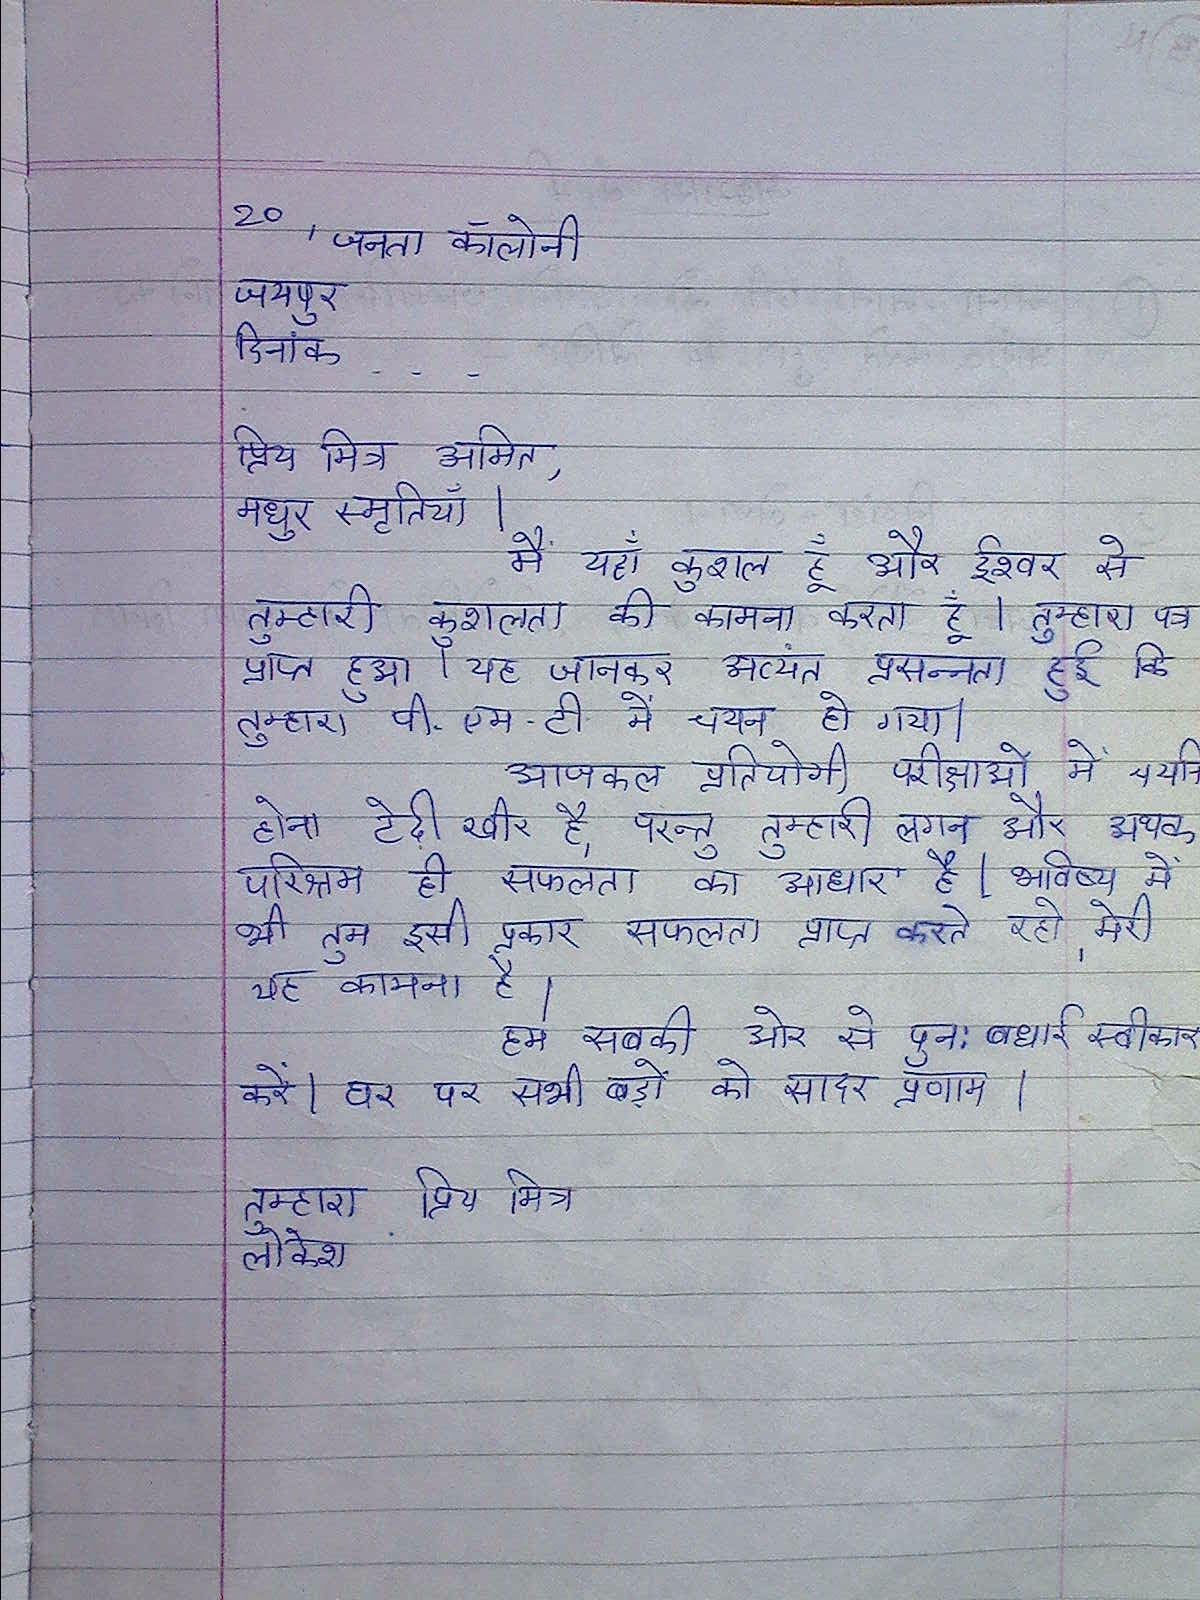 20, जनता कॉलोनी
जयपुर
दिनांक - - -
प्रिय मित्र अमित,
मधुर स्मृतियाँ |
मैं यहाँ कुशल हूँ और ईश्वर से
तुम्हारी कुशलता की कामना करता हूं | तुम्हारा पत्र
प्राप्त हुआ | यह जानकर अत्यंत प्रसन्नता हुई कि
तुम्हारा पी. एम. टी. में चयन हो गया|
आजकल प्रतियोगी परीक्षाओं में
होना टेढ़ी खीर है, परन्तु तुम्हारी लगन और अथक
परिश्रम ही सफलता का आधार है | भविष्य में
भी तुम इसी प्रकार सफलता प्राप्त करते रहो, मेरी
यह कामना है |
हम सबकी ओर से पुनः बधाई स्वीकार
करें | घर पर सभी बड़ों को सादर प्रणाम |
तुम्हारा प्रिय मित्र
लोकेश